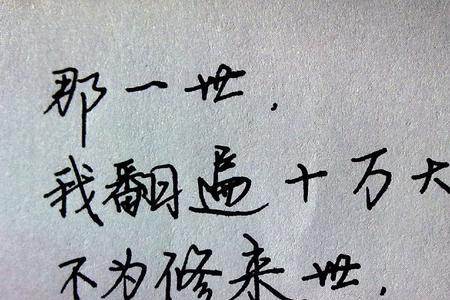 那一世,
我翻遍十万大
不为修来世,